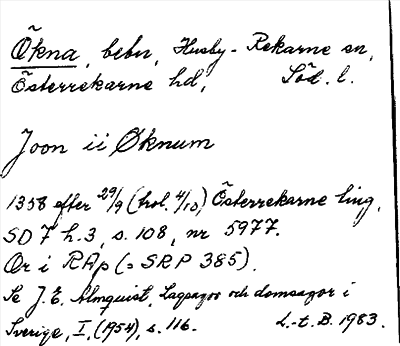 Ökna, bebn, Husby-Rekarne sn,
Österrekarne hd, Söd. l.
Joon ii Øknum
1358 efter 29/9 (trol. 4/10) Österrekarne ting.
SD 7 h.3, s. 108, nr 5977.
Or i RAp (= SRP 385).
Se J.E. Almquist, Lagsagor och domsagor i
Sverige, I, (1954), s. 116. L.-t. B. 1983.